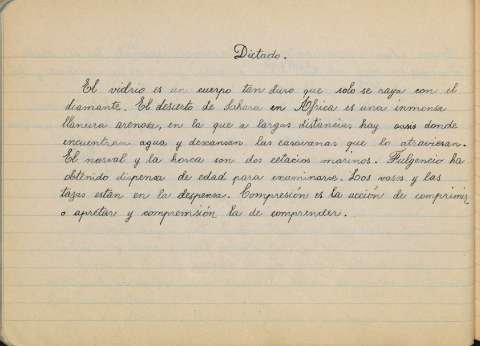 Dictado.
El vidrio es un cuerpo tan duro que solo se raya con el
diamante. El desierto de Sahara en África es una inmensa
llanura arenosa, en la que a largas distancias hay oasis donde
encuentran agua y descansan las caravanas que lo atraviesan.
El narval y la horca son dos cetacios marinos. Fulgencio ha
obtenido dispensa de edad para examinarse. Los vasos y las
tazas están en la despensa. Compresión es la acción de comprimir
o apretar y comprensión la de comprender.